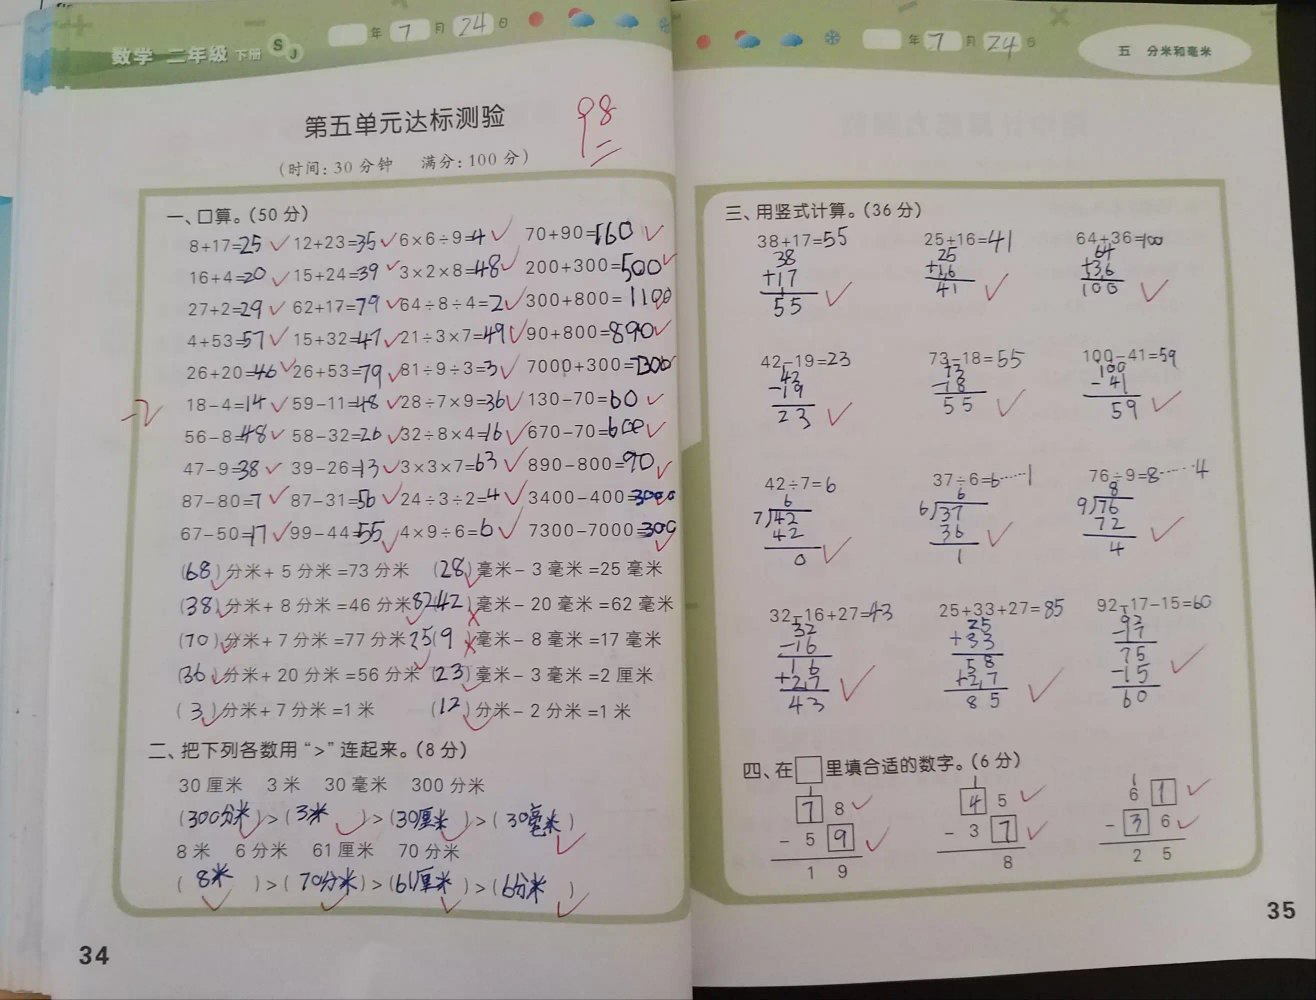 数学 二年级 下册 SJ
年 7 月 24 日
第五单元达标测验
98
(时间:30分钟 满分:100分)
一、口算。(50分)
8+17=25 12+23=35 6×6÷9=4 70+90=160
16+4=20 15+24=39 3×2×8=48 200+300=500
27+2=29 62+17=79 64÷8÷4=2 300+800=1100
4+53=57 15+32=47 21÷3×7=49 90+800=890
26+20=46 26+53=79 81÷9÷3=3 7000+300=7300
-2
18-4=14 59-11=48 28÷7×9=36 130-70=60
56-8=48 58-32=26 32÷8×4=16 670-70=600
47-9=38 39-26=13 3×3×7=63 890-800=90
87-80=7 87-31=56 24÷3÷2=4 3400-400=3000
67-50=17 99-44=55 4×9÷6=6 7300-7000=300
(68)分米+5分米=73分米 (28)毫米-3毫米=25毫米
(38)分米+8分米=46分米 82(42)毫米-20毫米=62毫米
(70)分米+7分米=77分米 25(9)毫米-8毫米=17毫米
(36)分米+20分米=56分米 (23)毫米-3毫米=2厘米
(3)分米+7分米=1米 (12)分米-2分米=1米
二、把下列各数用“>”连起来。(8分)
30厘米 3米 30毫米 300分米
(300分米)>(3米)>(30厘米)>(30毫米)
8米 6分米 61厘米 70分米
(8米)>(70分米)>(61厘米)>(6分米)
34
年 7 月 24 日
五 分米和毫米
三、用竖式计算。(36分)
38+17=55 25+16=41 64+36=100
38 25 64
+17 +16 +36
55 41 100
42-19=23 73-18=55 100-41=59
42 73 100
-19 -18 -41
23 55 59
42÷7=6 37÷6=6……1 76÷9=8……4
6 6 8
7 42 6 37 9 76
42 36 72
0 1 4
32-16+27=43 25+33+27=85 92-17-15=60
32 25 92
-16 +33 -17
16 58 75
+27 +27 -15
43 85 60
四、在□里填合适的数字。(6分)
7 8 4 5 6 1
-5 9 -3 7 -3 6
1 9 8 2 5
35